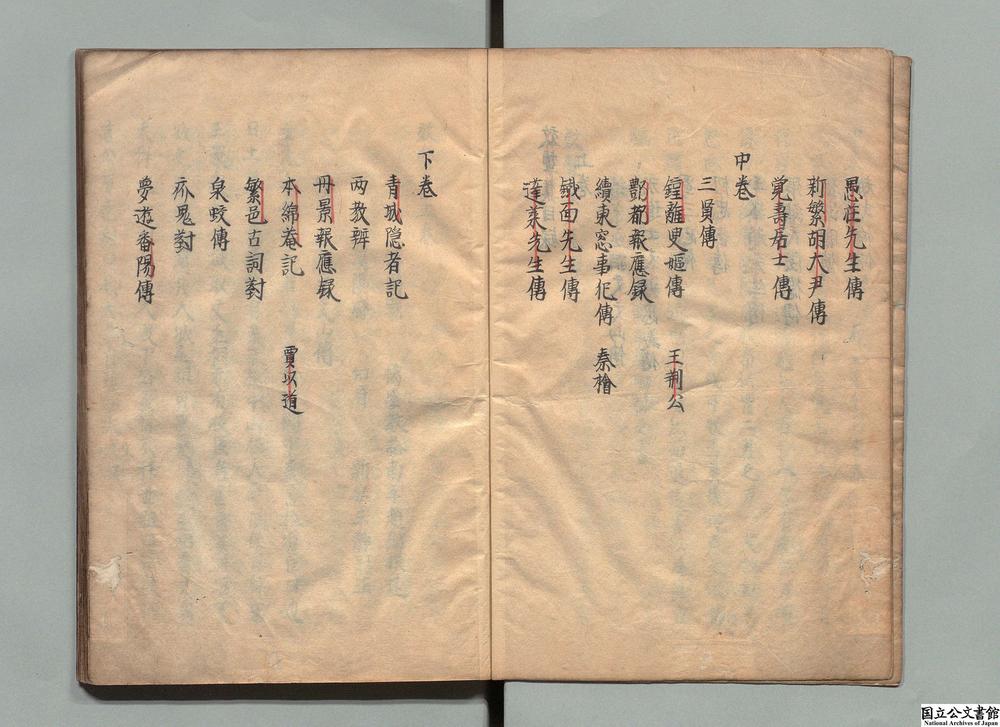 愚荘先生傳
新繁胡大尹傳
覚壽居士傳
中巻
三賢傳
鍾離叟嫗傳　王荆公
酆都報應録
續東窓事犯傳　秦檜
鐵面先生傳
蓬萊先生傳
下巻
青城隠者記
两教辨
丹景報應録
本綿菴記　賈以道
繁邑古詞對
泉蛟傳
疥鬼對
夢遊番陽傳
国立公文書館
National Archives of Japan